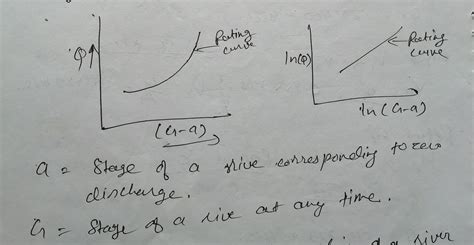 Q↑
Rating
curve
(G-a)
ln(Q)
Rating
curve
ln(G-a)
a = Stage of a rive corresponding to zero
discharge.
G = Stage of a rive at any time.
of a river